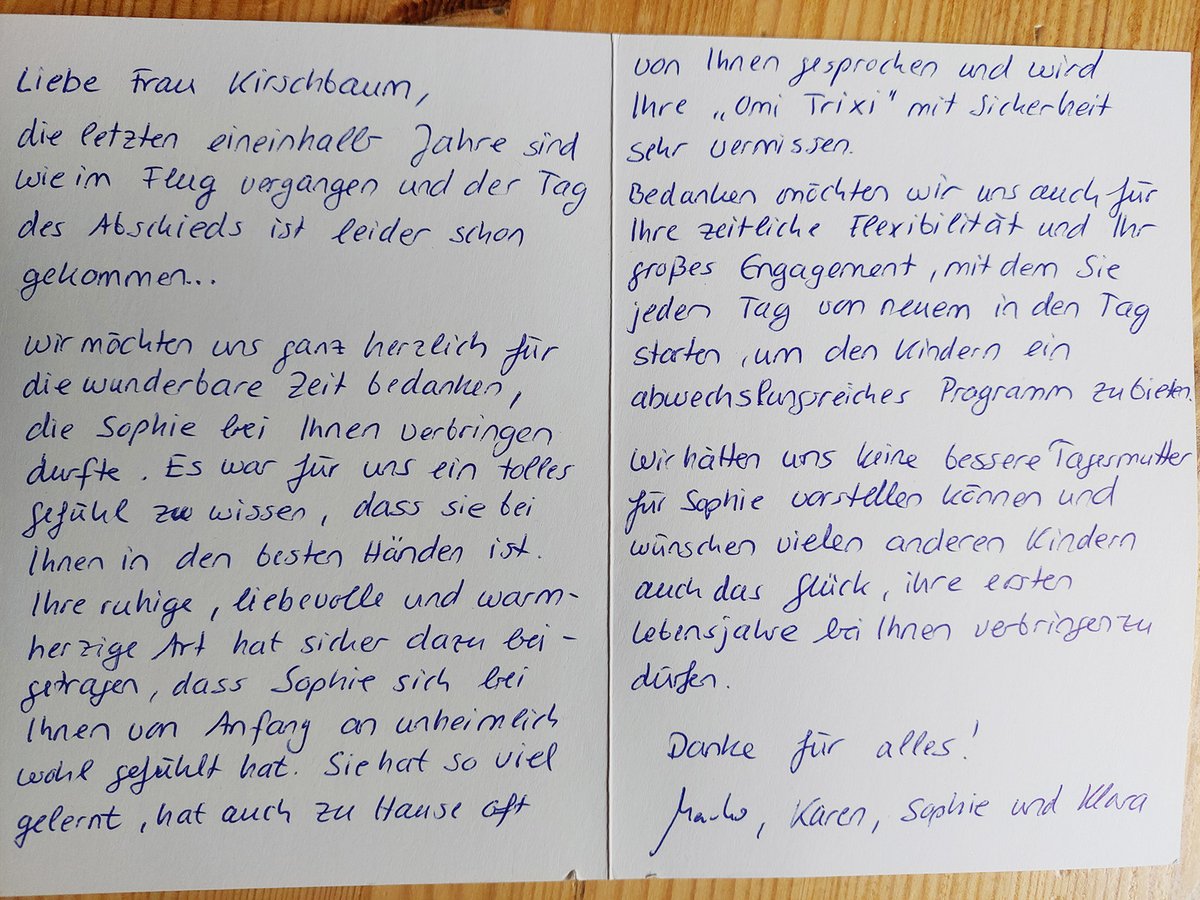 Liebe Frau Kirschbaum,
die letzten eineinhalb Jahre sind
wie im Flug vergangen und der Tag
des Abschieds ist leider schon
gekommen...
Wir möchten uns ganz herzlich für
die wunderbare Zeit bedanken,
die Sophie bei Ihnen verbringen
durfte. Es war für uns ein tolles
Gefühl zu wissen, dass sie bei
Ihnen in den besten Händen ist.
Ihre ruhige, liebevolle und warm-
herzige Art hat sicher dazu bei-
getragen, dass Sophie sich bei
Ihnen von Anfang an unheimlich
wohl gefühlt hat. Sie hat so viel
gelernt, hat auch zu Hause oft
von Ihnen gesprochen und wird
Ihre „Omi Trixi" mit Sicherheit
sehr vermissen.
Bedanken möchten wir uns auch für
Ihre zeitliche Flexibilität und Ihr
großes Engagement, mit dem Sie
jeden Tag von neuem in den Tag
starten, um den Kindern ein
abwechslungsreiches Programm zu bieten.
Wir hätten uns keine bessere Tagesmutter
für Sophie vorstellen können und
wünschen vielen anderen Kindern
auch das Glück, ihre ersten
Lebensjahre bei Ihnen verbringen zu
dürfen.
Danke für alles!
Karen, Sophie und Klara